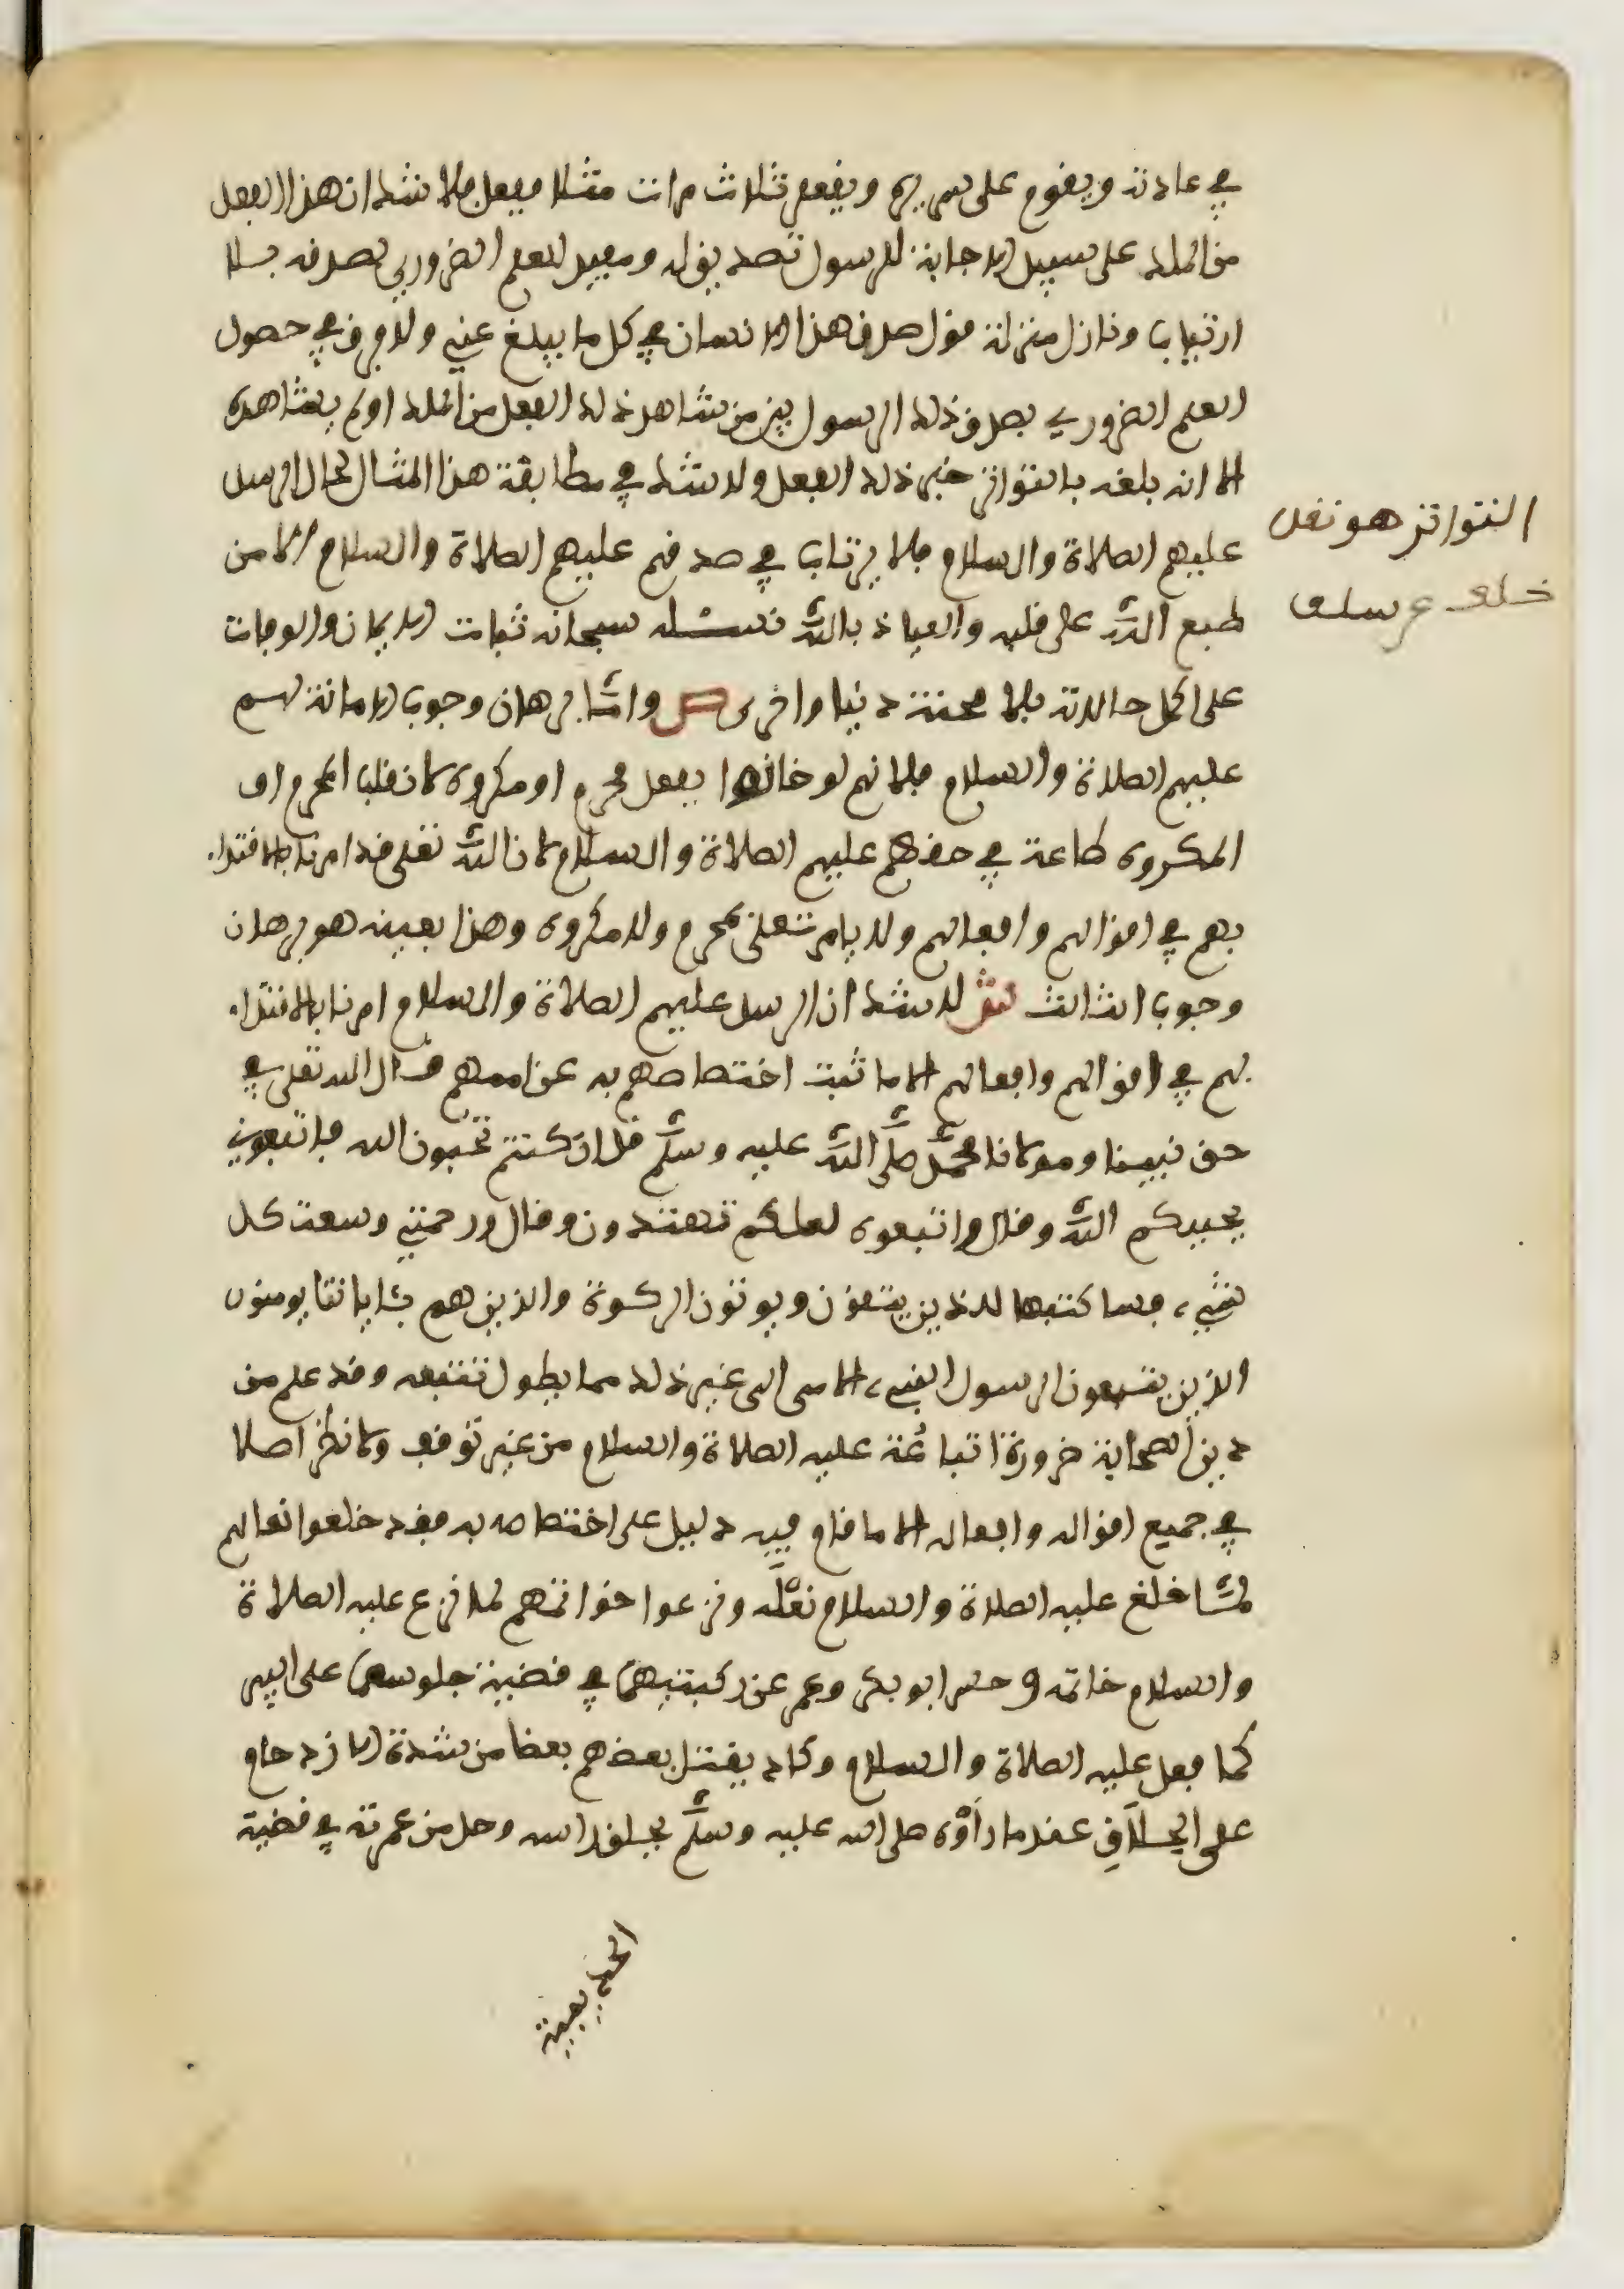 في عادته ويقوم على سريره ويقعد ثلاث مرات مثلا ففعل فلا شك ان هذا الفعل
من الملك على سبيل الاجابة للرسول تصديق له ومفيد للعلم الضروري بصدقه بلا
ارتياب ونازل منزلة قوله صدق هذا الانسان في كل ما يبلغ عني ولا فرق في حصول
العلم الضروري بصدق ذلك الرسول بين من شاهد ذلك الفعل من الملك او لم يشاهده
الا انه بلغه بالتواتر خبر ذلك الفعل ولا شك في مطابقة هذا المثال لحال الرسل
عليهم الصلاة والسلام فلا يرتاب في صدقهم عليهم الصلاة والسلام الا من
طبع الله على قلبه والعياذ بالله نسئله سبحانه ثبات الايمان والوفات
على اكمل حالاته بلا محنة دنيا واخرى ص واما برهان وجوب الامانة لهم
عليهم الصلاة والسلام فلانهم لو خانوا بفعل محرم او مكروه لانقلب المحرم او
المكروه طاعة في حقهم عليهم الصلاة والسلام لان الله تعلى قد امرنا بالاقتداء
بهم في اقوالهم وافعالهم ولا يامر تعلى بمحرم ولا مكروه وهذا بعينه هو برهان
وجوب الثالث ش لا شك ان الرسل عليهم الصلاة والسلام امرنا بالاقتداء
بهم في اقوالهم وافعالهم الا ما ثبت اختصاصهم به عن اممهم قال الله تعلى في
حق نبينا ومولانا محمد صلى الله عليه وسلم قل ان كنتم تحبون الله فاتبعوني
يحببكم الله وقال واتبعوه لعلكم تهتدون وقال ورحمتي وسعت كل
شيء فساكتبها للذين يتقون ويوتون الزكوة والذين هم بئاياتنا يومنون
الذين يتبعون الرسول النبيء الامي الى غير ذلك مما يطول تتبعه وقد علم من
دين الصحابة ضرورة اتباعه عليه الصلاة والسلام من غير توقف ولا نظر اصلا
في جميع اقواله وافعاله الا ما قام فيه دليل على اختصاصه به فقد خلعوا نعالهم
لما خلع عليه الصلاة والسلام نعله ونزعوا خواتمهم لما نزع عليه الصلاة
والسلام خاتمه وحسر ابو بكر وعمر عن ركبتيهما في قضية جلوسهما على البير
كما فعل عليه الصلاة والسلام وكاد يقتل بعضهم بعضا من شدة الازدحام
على الحلاق عندما رأوه صلى الله عليه وسلم يحلق راسه وحل من عمرته في قضية
الحديبية
التواتر هو نقل
خلف عن سلف